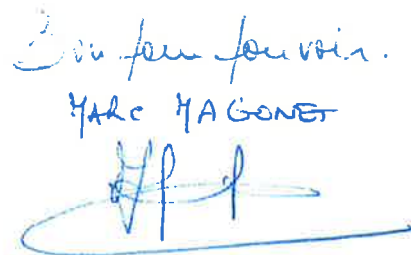 Bon pour pouvoir.
MARC MAGONET